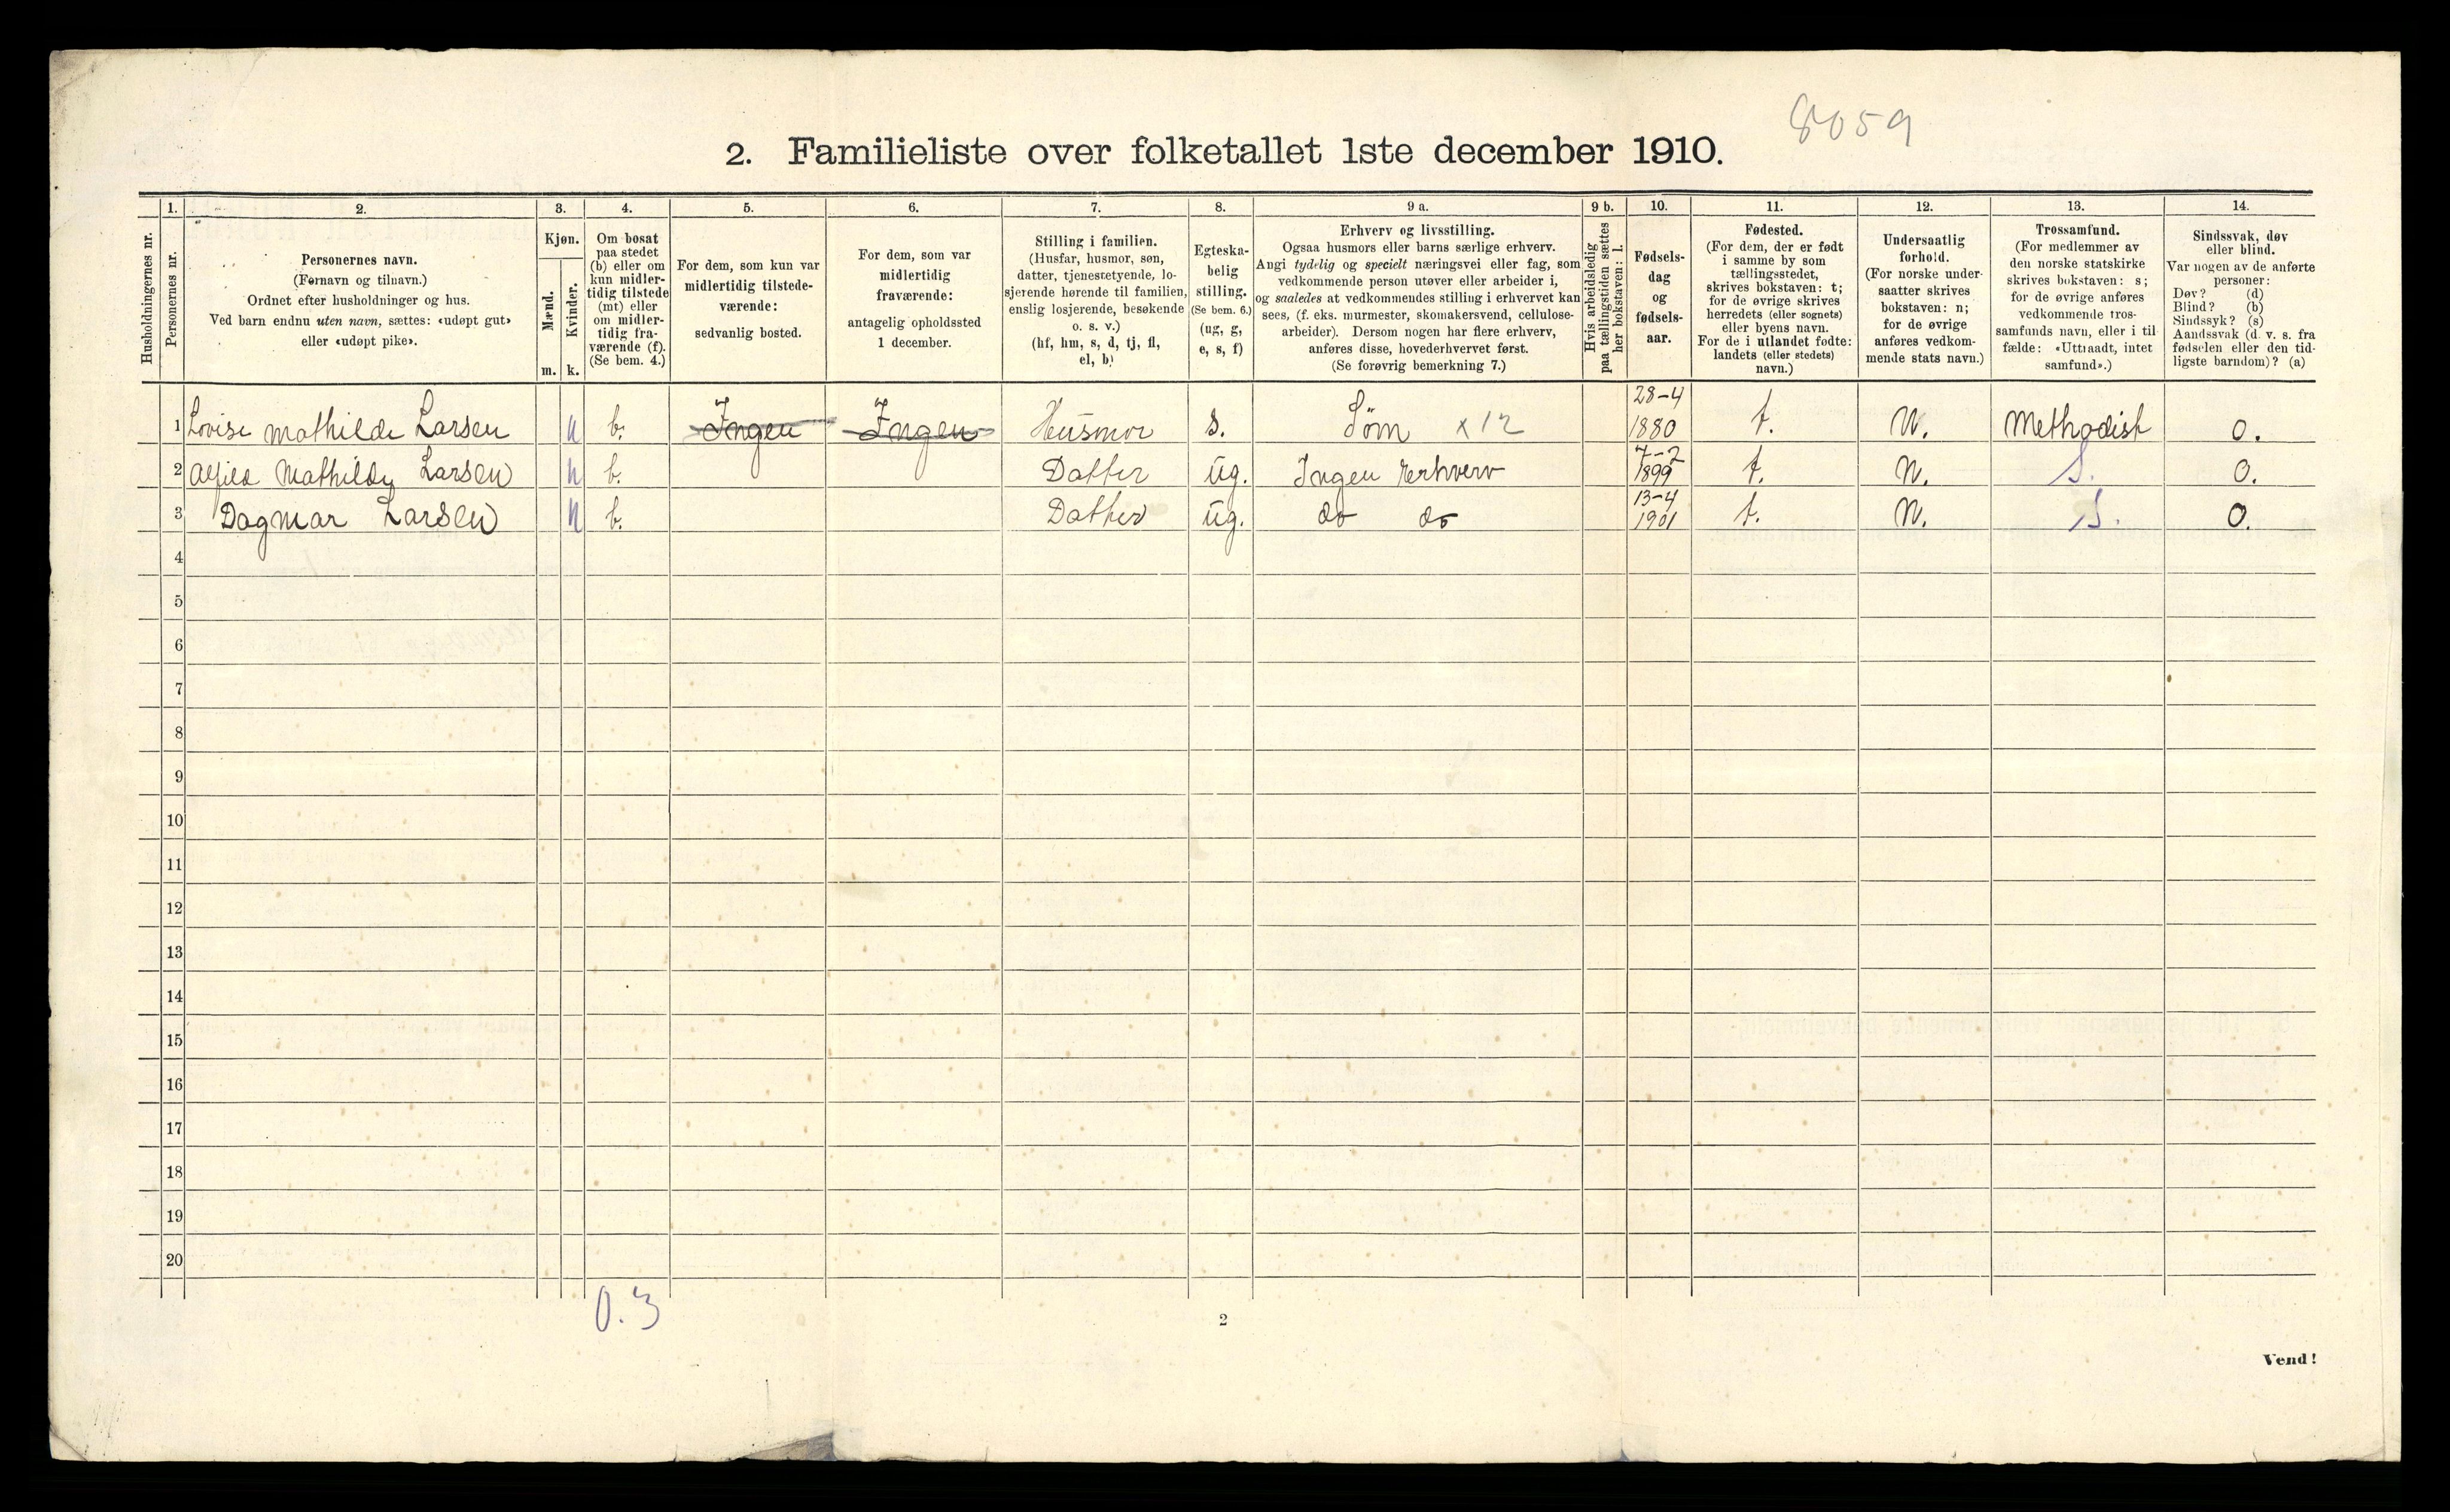 8059
2. Familieliste over folketallet 1ste december 1910.
1. 2. 3. 4. 5. 6. 7. 8. 9 a. 9 b. 10. 11. 12. 13. 14.
Husholdningernes nr.
Personernes nr.
Personernes navn.
(Fornavn og tilnavn.)
Ordnet efter husholdninger og hus.
Ved barn endnu uten navn, sættes: «udøpt gut»
eller «udøpt pike».
Kjøn.
Mænd.
Kvinder.
m. k.
Om bosat
paa stedet
(b) eller om
kun midler-
tidig tilstede
(mt) eller
om midler-
tidig fra-
værende (f).
(Se bem. 4.)
For dem, som kun var
midlertidig tilstede-
værende:
sedvanlig bosted.
For dem, som var
midlertidig
fraværende:
antagelig opholdssted
1 december.
Stilling i familien.
(Husfar, husmor, søn,
datter, tjenestetyende, lo-
sjerende hørende til familien,
enslig losjerende, besøkende
o. s. v.)
(hf, hm, s, d, tj, fl,
el, b)
Egteska-
belig
stilling.
(Se bem. 6.)
(ug, g,
e, s, f)
Erhverv og livsstilling.
Ogsaa husmors eller barns særlige erhverv.
Angi tydelig og specielt næringsvei eller fag, som
vedkommende person utøver eller arbeider i,
og saaledes at vedkommendes stilling i erhvervet kan
sees, (f. eks. murmester, skomakersvend, cellulose-
arbeider). Dersom nogen har flere erhverv,
anføres disse, hovederhvervet først.
(Se forøvrig bemerkning 7.)
Hvis arbeidsledig
paa tællingstiden sættes
her bokstaven: l.
Fødsels-
dag
og
fødsels-
aar.
Fødested.
(For dem, der er født
i samme by som
tællingsstedet,
skrives bokstaven: t;
for de øvrige skrives
herredets (eller sognets)
eller byens navn.
For de i utlandet fødte:
landets (eller stedets)
navn.)
Undersaatlig
forhold.
(For norske under-
saatter skrives
bokstaven: n;
for de øvrige
anføres vedkom-
mende stats navn.)
Trossamfund.
(For medlemmer av
den norske statskirke
skrives bokstaven: s;
for de øvrige anføres
vedkommende tros-
samfunds navn, eller i til
fælde: «Uttraadt, intet
samfund».)
Sindssvak, døv
eller blind.
Var nogen av de anførte
personer:
Døv? (d)
Blind? (b)
Sindssyk? (s)
Aandssvak (d. v. s. fra
fødselen eller den tid-
ligste barndom)? (a)
1 Lovise Mathilde Larsen b. Ingen Ingen Husmor s. Søm x12 28-4 1880 t. N. Methodist 0.
2 Mathilde Larsen b. Datter ug. Ingen Erhverv 7-2 1899 t. N. S. 0.
3 Dagmar Larsen b. Datter ug. do do 13-4 1901 t. N. S. 0.
4
5
6
7
8
9
10
11
12
13
14
15
16
17
18
19
20
0.3
2
Vend!